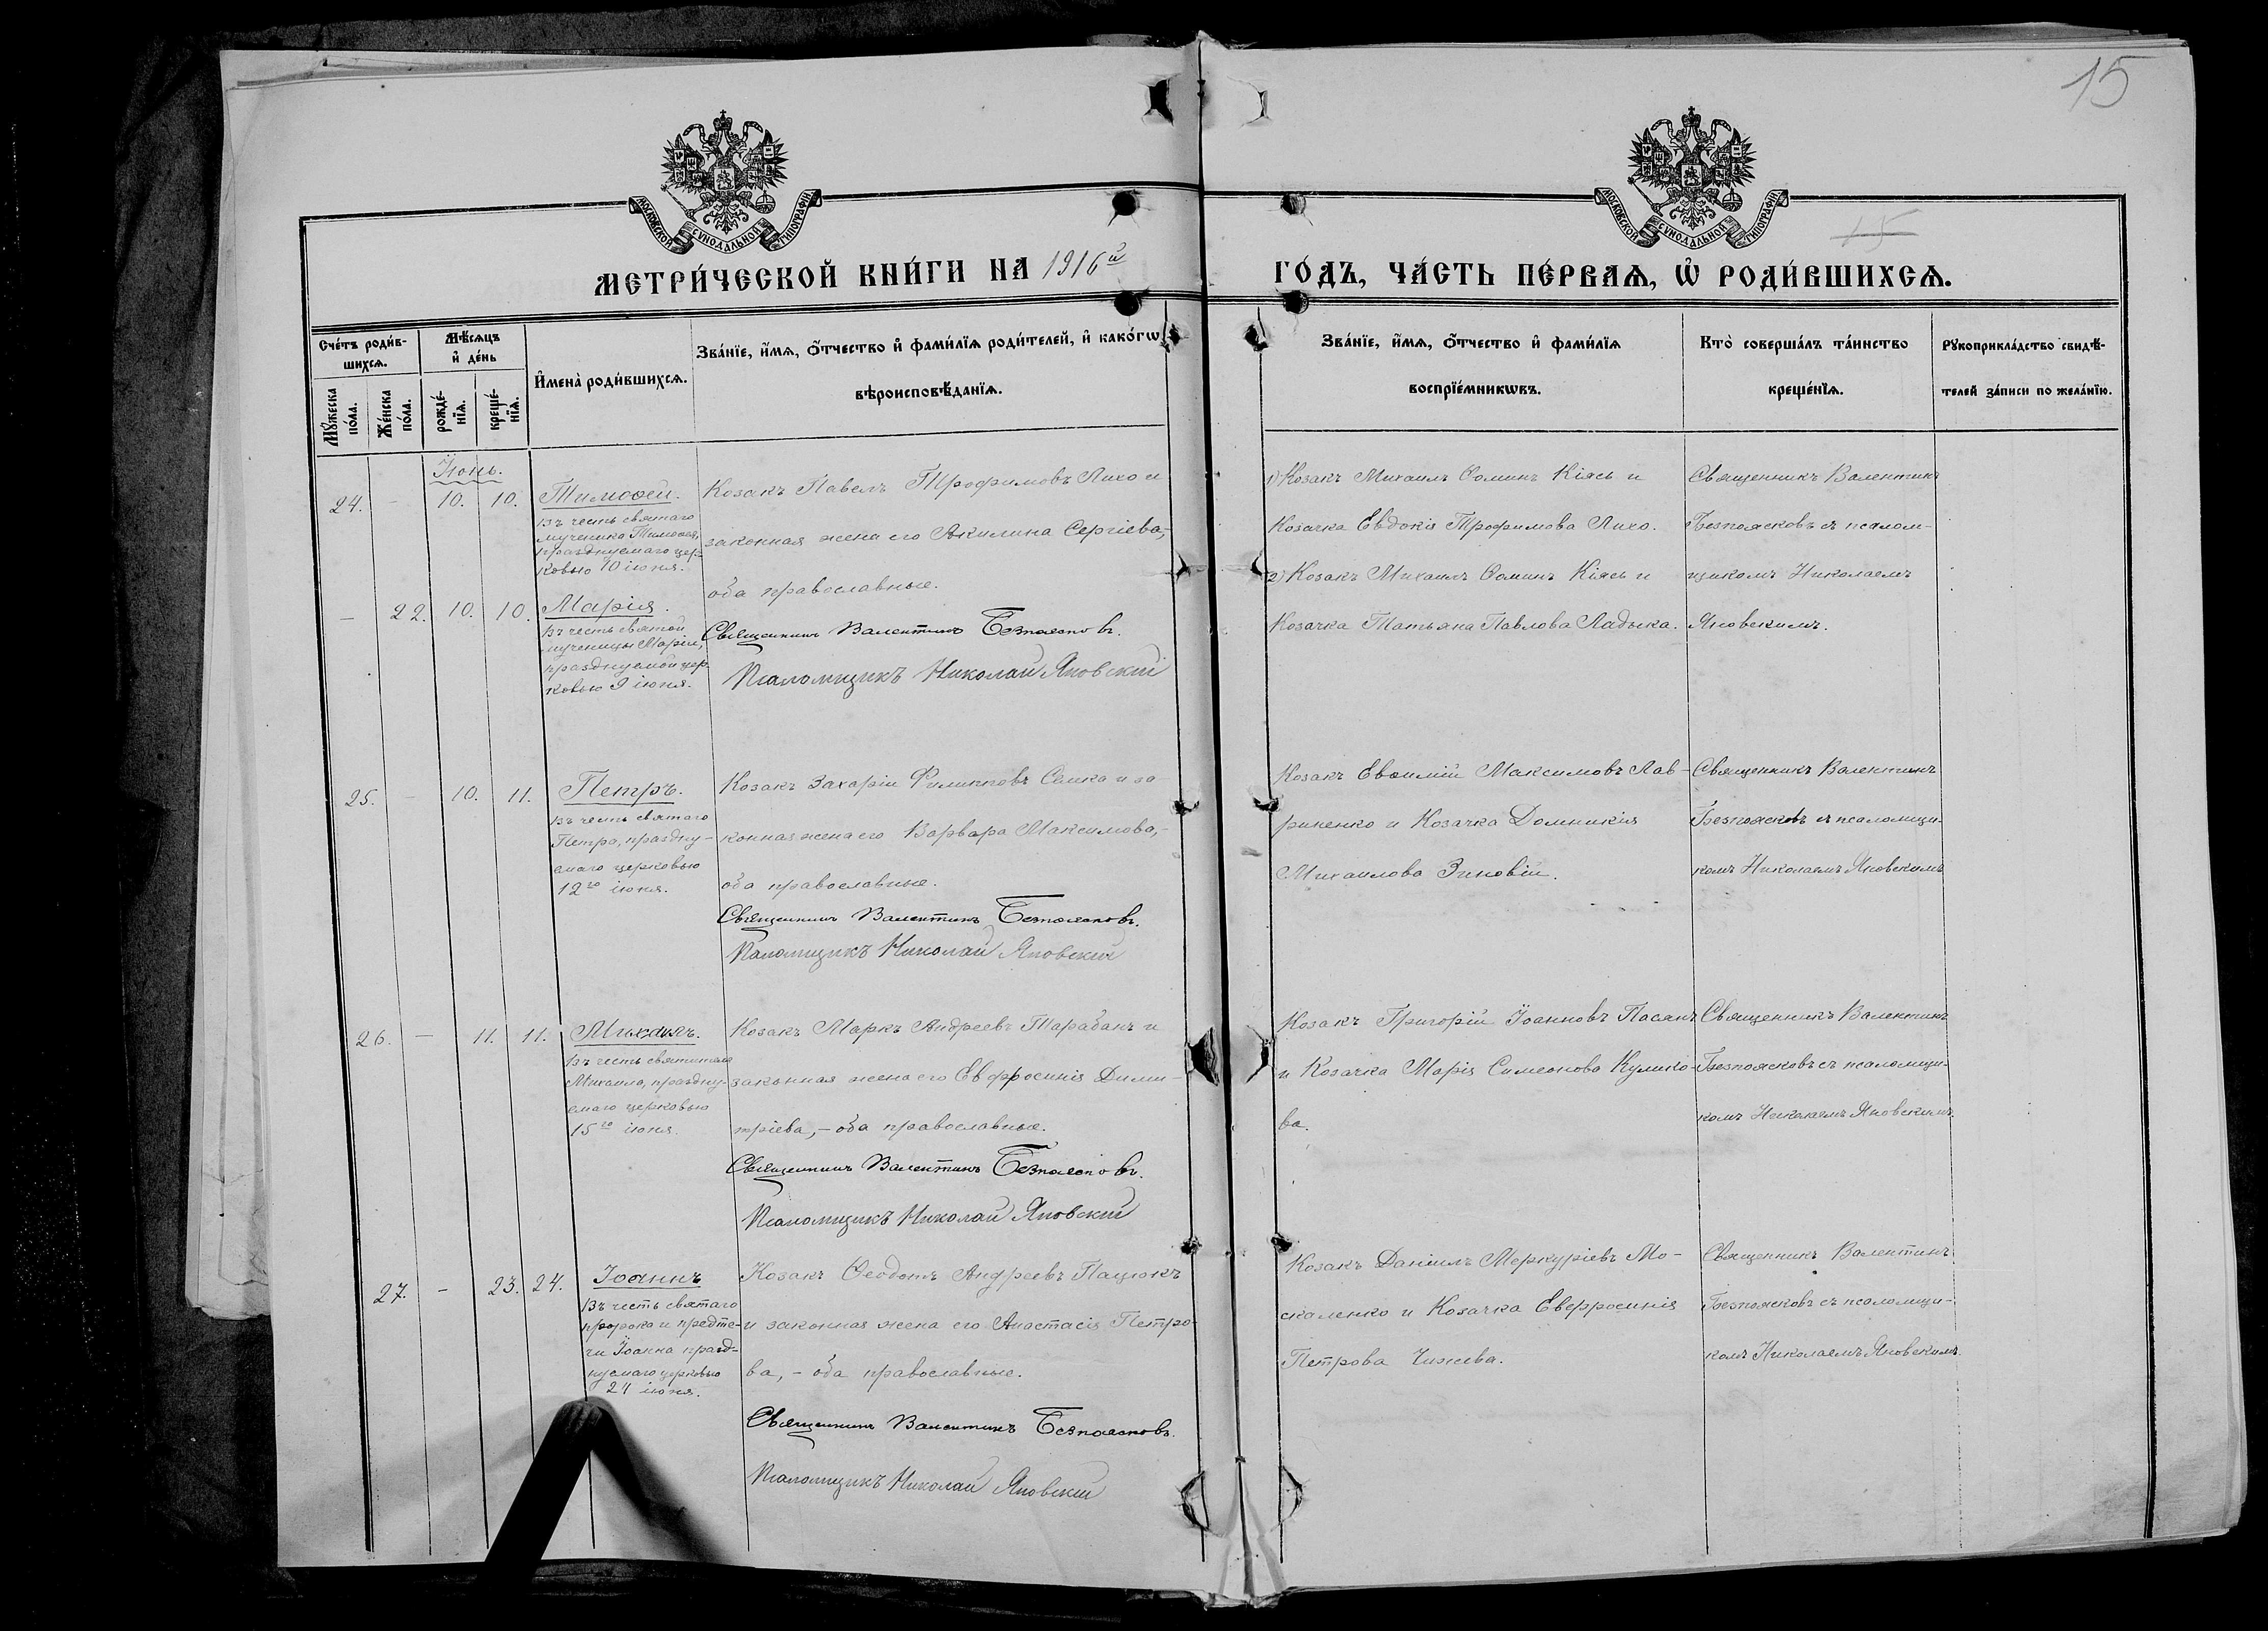 15
МОСКОВСКОЙ СУНОДАЛЬНОЙ ТИПОГРАФІИ.
МОСКОВСКОЙ СУНОДАЛЬНОЙ ТИПОГРАФІИ.
15
МЕТРИ́ЧЕСКОЙ КНИ́ГИ НА 1916й
ГО́ДЪ, ЧА́СТЬ ПЕ́РВАѦ, Ѽ РОДИ́ВШИХСѦ.
Сче́тъ роди́в-
шихсѧ.
Мѣ́сѧцъ
и҆ де́нь
Мꙋ́жеска
по́ла.
Же́нска
по́ла.
рожде́-
нїѧ.
креще́-
нїѧ.
И҆мена̀ роди́вшихсѧ.
Зва́нїе, и҆́мѧ, ѻ҆́тчество и҆ фами́лїѧ роди́телей, и҆ како́гѡ
вѣроисповѣ́данїѧ.
Зва́нїе, и҆́мѧ, ѻ҆́тчество и҆ фами́лїѧ
воспрїе́мникѡвъ.
Кто̀ соверша́лъ та́инство
креще́нїѧ.
Рꙋкоприкла́дство свидѣ́-
телей за́писи по жела́нїю.
Іюнь.
24. - 10. 10. Тимоѳей.
Въ честь святаго
мученика Тимоѳея,
празднуемаго цер-
ковью 10 іюня.
Козакъ Павелъ Трофимовъ Лихо и
законная жена его Акилина Сергіева,-
оба православные.
Священникъ Валентинъ Безпоясковъ.
Псаломщикъ Николай Яновскій
1) Козакъ Михаилъ Ѳоминъ Кіясь и
Козачка Евдокія Трофимова Лихо.
2) Козакъ Михаилъ Ѳоминъ Кіясь и
Козачка Татьяна Павлова Ладыка.
Священникъ Валентинъ
Безпоясковъ съ псалом-
щикомъ Николаемъ
Яновскимъ.
- 22. 10. 10. Марія.
Въ честь святой
мученицы Маріи,
празднуемой цер-
ковью 9 іюня.
25. - 10. 11. Петръ.
Въ честь святаго
Петра, праздну-
емаго церковью
12го іюня.
Козакъ Захарій Филипповъ Семка и за-
конная жена его Варвара Максимова,-
оба православные.
Священникъ Валентинъ Безпоясковъ.
Псаломщикъ Николай Яновскій
Козакъ Евѳимій Максимовъ Лав-
риненко и Козачка Домникія
Михаилова Зиновій.
Священникъ Валентинъ
Безпоясковъ съ псаломщи-
комъ Николаемъ Яновскимъ
26. - 11. 11. Михаилъ.
Въ честь святителя
Михаила, праздну-
емаго церковью
15го іюня.
Козакъ Маркъ Андреевъ Тарабанъ и
законная жена его Евфросинія Дими-
тріева,- оба православные.
Священникъ Валентинъ Безпоясковъ.
Псаломщикъ Николай Яновскій
Козакъ Григорій Іоанновъ Пасанъ
и Козачка Марія Симеонова Кулико-
ва.
Священникъ Валентинъ
Безпоясковъ съ псаломщи-
комъ Николаемъ Яновскимъ.
27. - 23. 24. Іоаннъ
Въ честь святаго
пророка и предте-
чи Іоанна празд-
нуемаго церковью
24 іюня.
Козакъ Ѳеодотъ Андреевъ Пацюкъ
и законная жена его Анастасія Петро-
ва,- оба православные.
Священникъ Валентинъ Безпоясковъ.
Псаломщикъ Николай Яновскій
Козакъ Даніилъ Меркуріевъ Мо-
скаленко и Козачка Евфросинія
Петрова Чижева.
Священникъ Валентинъ
Безпоясковъ съ псаломщи-
комъ Николаемъ Яновскимъ.